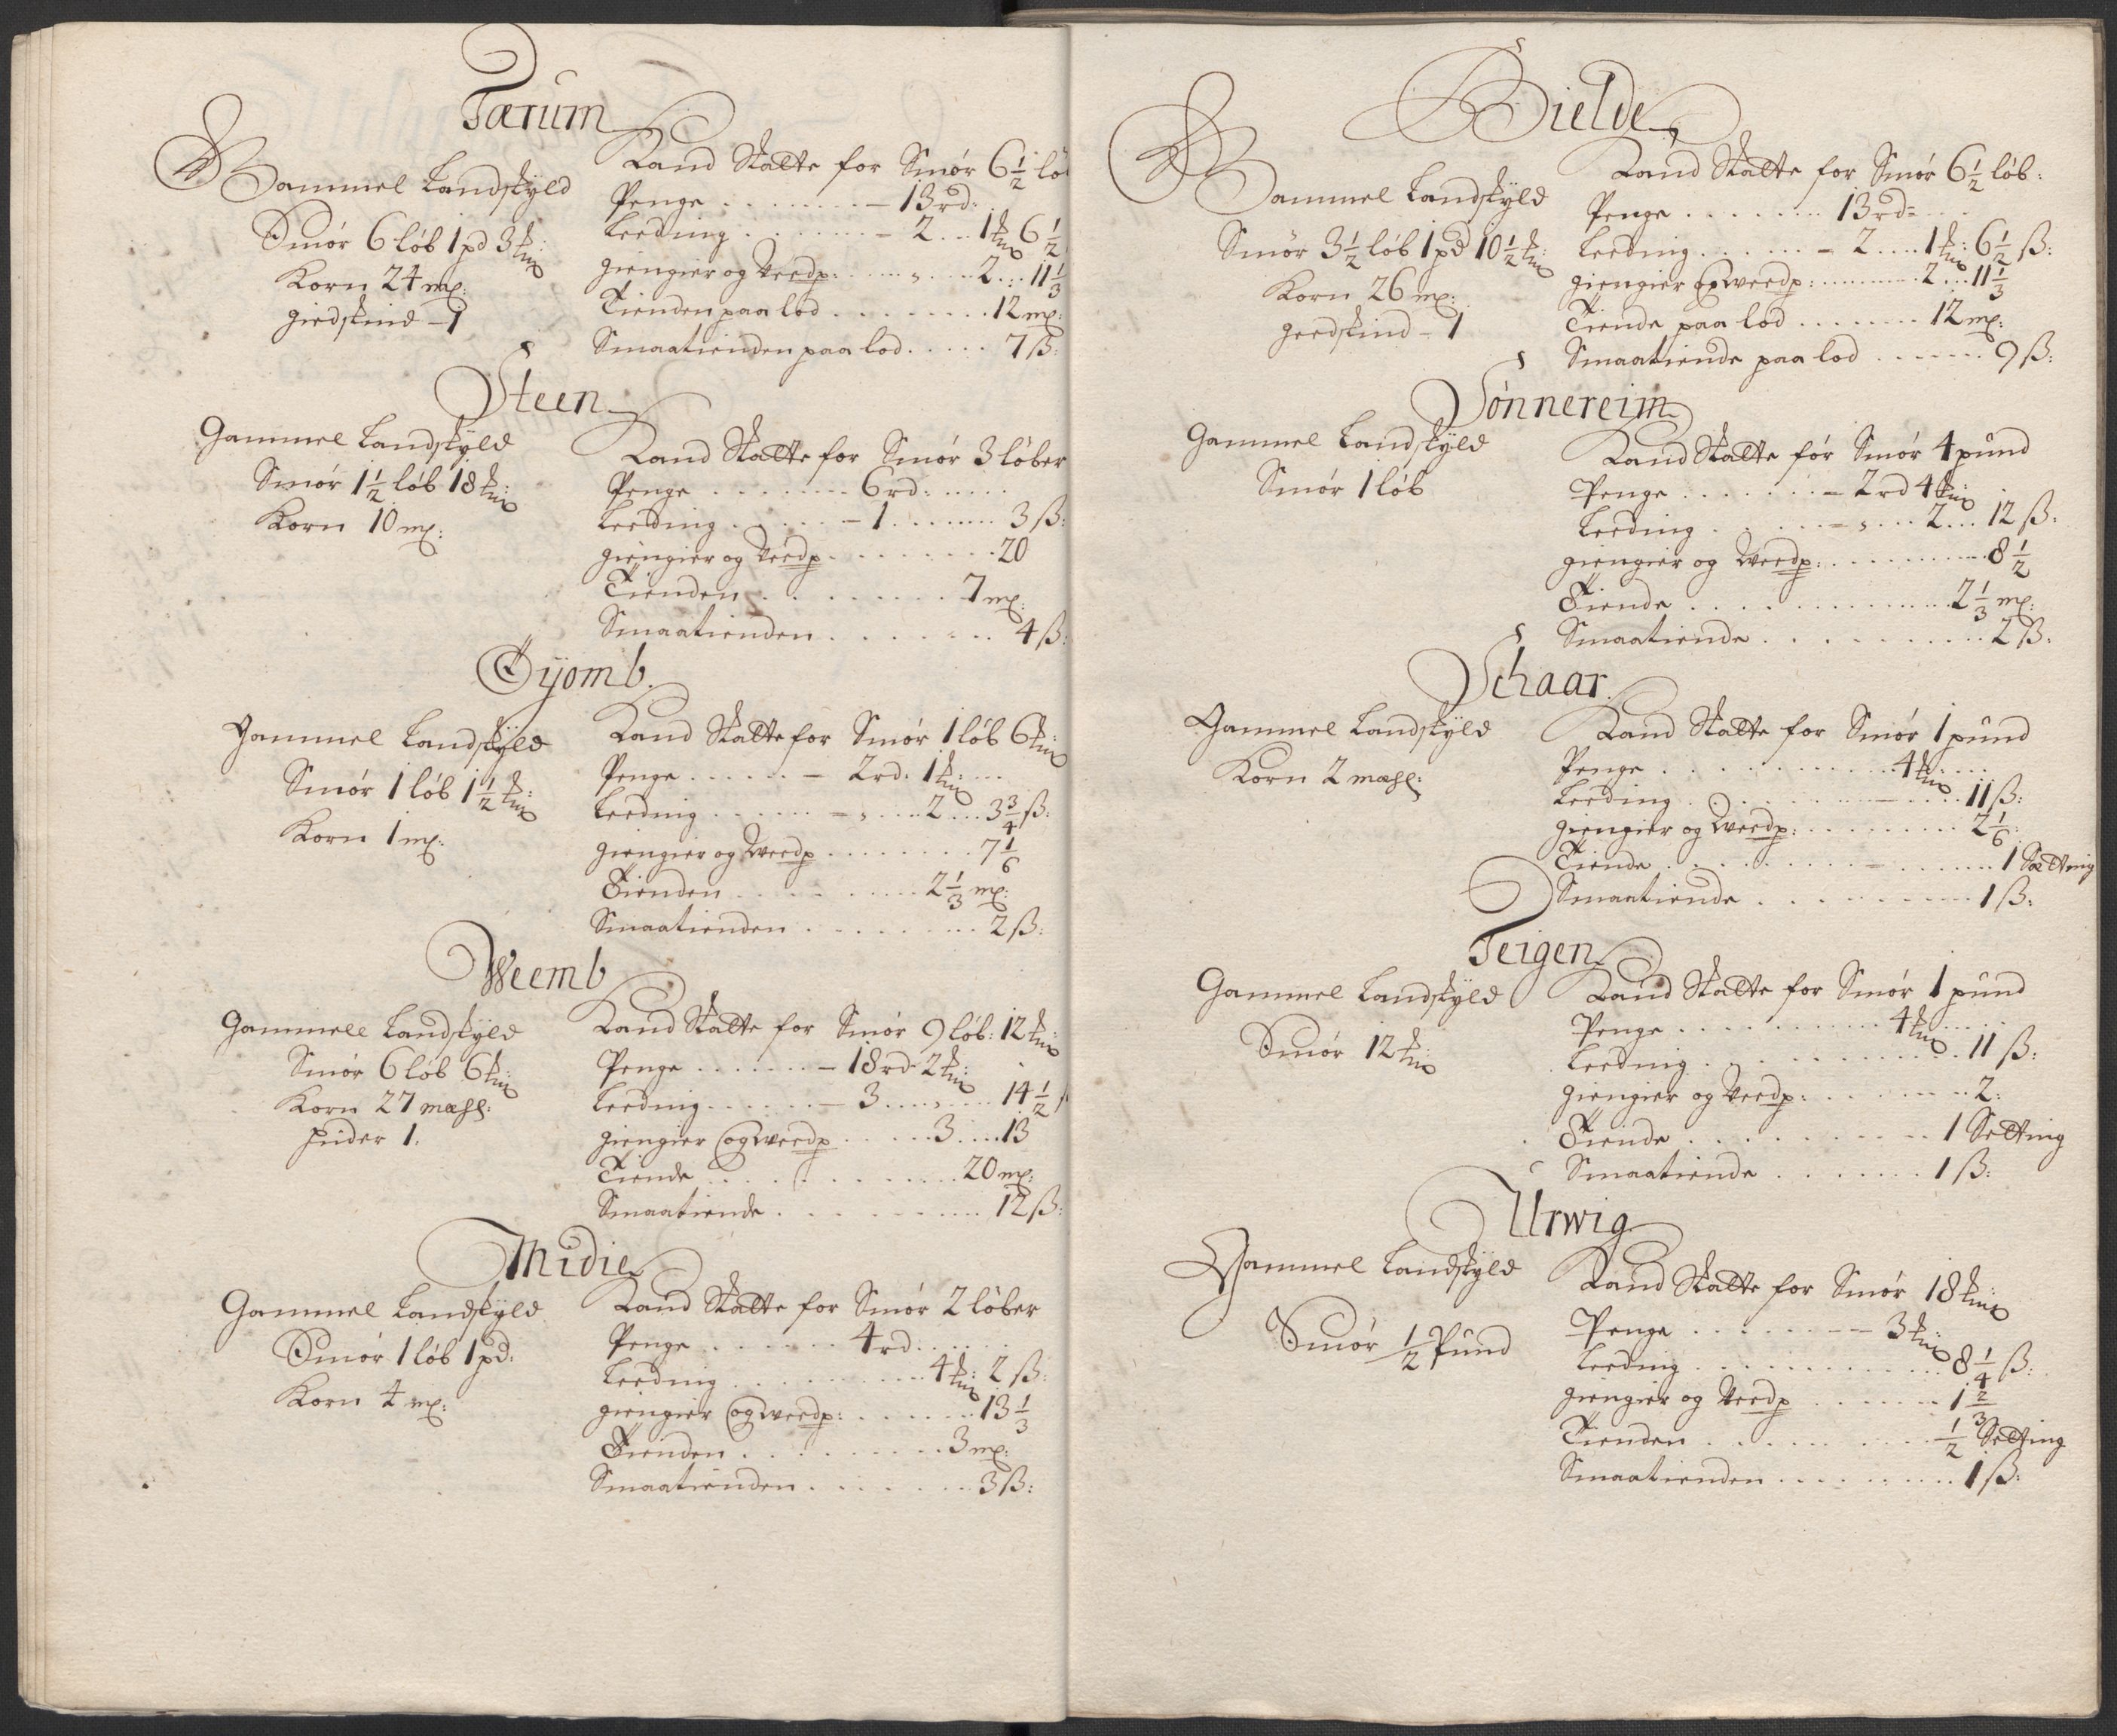 Tærum
Gammel Landskyld
Smör 6 löb 1 pd 3 mk:
Korn 24 mæ:
giedskind - 1
Land Skatte for Smör 6 1/2 lö
Penge . . . . . . . - 13 rd:
Leeding . . . . . . . - 2 . . . 1 mk 6 1/2
giengier og Veedp: . . . . „ . . . 2 . . . 11 1/3
Tienden paa lod . . . . . . . . 12 mæ:
Smaatienden paa lod . . . . . 7 ß:
Steen
Gammel Landskyld
Smör 1 1/2 löb 18 mk:
Korn 10 mæ:
Land Skatte for Smör 3 löber
Penge . . . . . . . 6 rd: . . . . .
Leeding . . . . . . - 1 . . . . . . . 3 ß:
giengier og Veedp . . . . . . . . . 20
Tienden . . . . . . . . . 7 mæ:
Smaatienden . . . . . . . . 4 ß:
Öyomb.
Gammel Landskyld
Smör 1 löb 1 1/2 mk:
Korn 1 mæ:
Land Skatte for Smör 1 löb 6 mk:
Penge . . . . . . - 2 rd: 1 mk: . . .
Leeding . . . . . . - „ . . . 2 . . . 3 3/4 ß:
giengier og Weedp . . . . . . . . 7 1/6
Tienden . . . . . . . . . 2 1/3 mæ:
Smaatienden . . . . . . . . . 2 ß:
Weemb
Gammell Landskyld
Smör 6 löb 6 mk:
Korn 27 mæhl:
huder 1.
Land Skatte for Smör 9 löb: 12 mk:
Penge . . . . . . . - 18 rd 2 mk: .
Leeding . . . . . . - 3 . . . „ . . . 14 1/2
giengier og weedp . . . . . 3 . . . . 13
Tiende . . . . . . . . . . . 20 mæ:
Smaatiende . . . . . . . . . . 12 ß:
Midie
Gammel Landskyld
Smör 1 löb 1 pd:
Korn 4 mæ:
Land Skatte for Smör 2 löber
Penge . . . . . . . 4 rd . . . . . .
Leeding . . . . . . . . . . 4 mk: 2 ß:
giengier og weedp: . . . . . . . 13 1/3
Tienden . . . . . . . . . . 3 mæ:
Smaatienden . . . . . . . . 3 ß:
Bielde
Gammel Landskyld
Smör 3 1/2 löb 1 pd 10 1/2 mk:
Korn 26 mæ:
geedskind - 1
Land Skatte for Smör 6 1/2 löb:
Penge . . . . . . . 13 rd = . . .
Leeding . . . . . . - 2 . . . . 1 mk: 6 1/2 ß:
giengier og weedp: . . . . . . . . 2 . . . 11 1/3
Tiende paa lod . . . . . . . 12 mæ:
Smaatiende paa lod . . . . . . . 9 ß:
Sönnereim
Gammel Landskyld
Smör 1 löb
Land Skatte for Smör 4 pund
Penge . . . . . . . - 2 rd 4 mk:
Leeding . . . . . . - „ . . . 2 . . . 12 ß:
giengier og Weedp: . . . . . . . . . 8 1/2
Tiende . . . . . . . . . . . . 2 1/3 mæ:
Smaatiende . . . . . . . . . . . 2 ß:
Schaar
Gammel Landskyld
Korn 2 mæhl:
Land Skatte for Smör 1 pund
Penge . . . . . . . . . . . 4 mk . . .
Leeding . . . . . . . . . - . . . . 11 ß:
giengier og Weedp: . . . . . . . . . 2 1/6:
Tiende . . . . . . . . . - . . . . . 1 Sætting
Smaatiende . . . . . . . . . . 1 ß:
Teigen
Gammel Landskyld
Smör 12 mk:
Land Skatte for Smör 1 pund
Penge . . . . . . . . . . 4 mk . . . .
Leeding . . . . . . . . . . . . . 11 ß:
giengier og Veedp: . . . . . . . . 2:
Tiende . . . . . . . . . . . 1 Setting
Smaatiende . . . . . . . . 1 ß:
Urwig
Gammel Landskyld
Smör 1/2 Pund
Land Skatte for Smör 18 mk:
Penge . . . . . . . - - 3 mk:
Leeding . . . . . . . . . . . . 8 1/4 ß:
giengier og Veedp . . . . . . . 1 2/3
Tienden . . . . . . . . . . 1/2 Setting
Smaatienden . . . . . . . . . 1 ß: